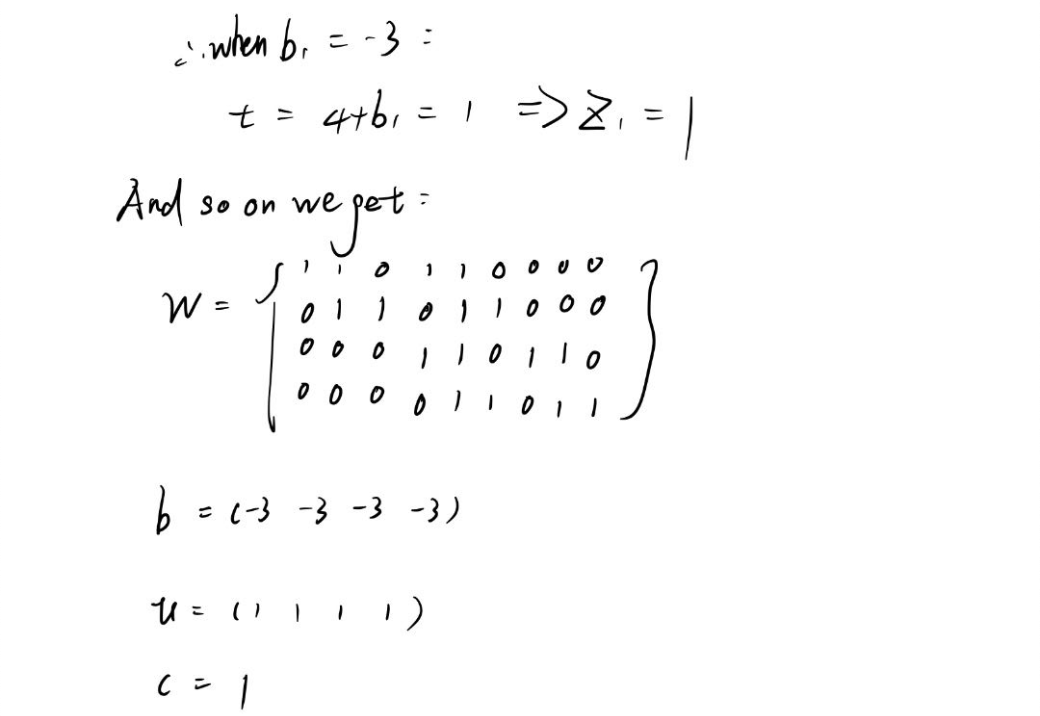 ∴ when b₁ = -3 :
t = 4+b₁ = 1 => Z₁ = 1
And so on we get :
W = { 1 1 0 1 1 0 0 0 0 }
0 1 1 0 1 1 0 0 0
0 0 0 1 1 0 1 1 0
0 0 0 0 1 1 0 1 1
b = (-3 -3 -3 -3)
u = (1 1 1 1)
c = 1